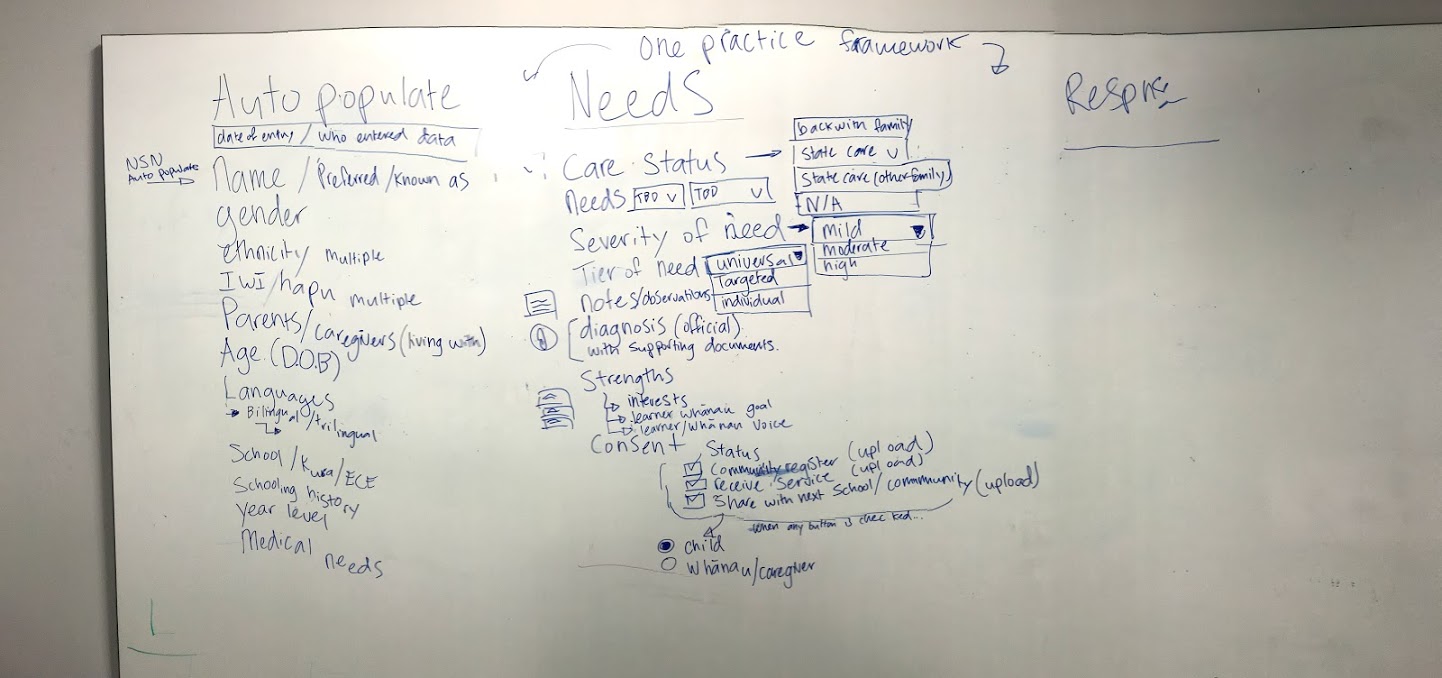 One practice framework
Auto populate
date of entry / who entered data
NSN
Auto populate
Name / Preferred / known as
gender
ethnicity multiple
IWI/hapu multiple
Parents/caregivers (living with)
Age (D.O.B)
Languages
Bilingual/trilingual
School/Kura/ECE
Schooling history
Year level
Medical needs
Needs
Care Status
back with family
State care
State care (other family)
N/A
Needs TBD TBD
Severity of need
mild
moderate
high
Tier of need
universal
Targeted
individual
notes/observations
diagnosis (official)
with supporting documents.
Strengths
interests
learner whānau goal
learner/whānau voice
Consent
Status
Community register (upload)
receive service (upload)
Share with next School/commmunity (upload)
when any button is checked...
child
Whānau/caregiver
Respnse